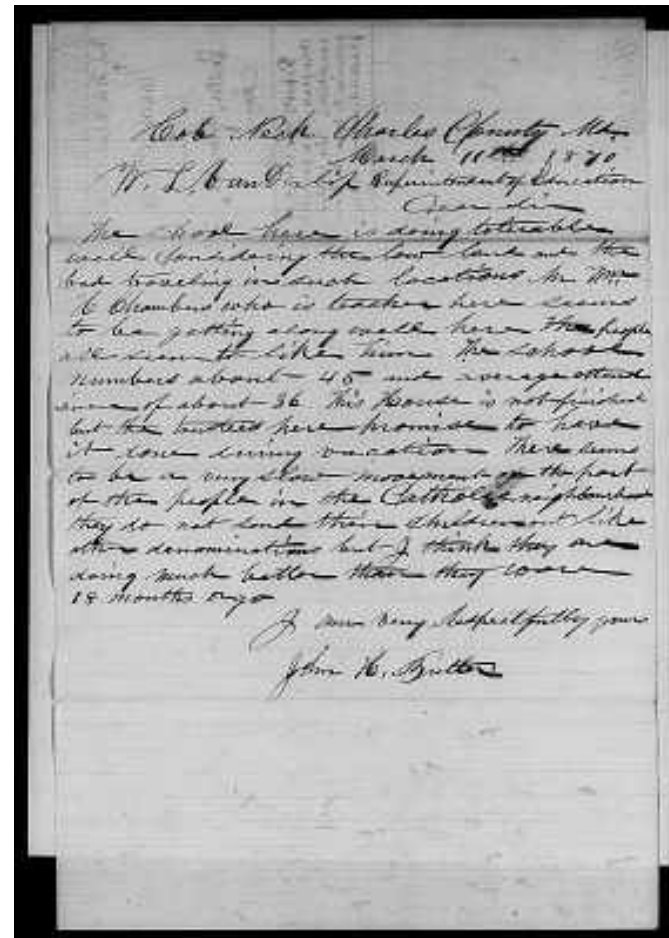 Cob Neck Charles County Md.
March 11th 1870
W. L. VanDerlip Superintendent of Education
Dear Sir
The school here is doing tolerable
well considering the low land and the
bad traveling in such locations Mr Wm
H Chambers who is teacher here seems
to be getting along well here The people
all seem to like him The school
numbers about 45 and average attend
ance of about 36 This House is not finished
but the trustees here promise to have
it done during vacation There seems
to be a very slow movement on the part
of the people in the Catholic neighbourhood
they do not send their children out like
other denominations but I think they are
doing much better than they were
18 months ago
I am very Respectfully yours
John H. Butler